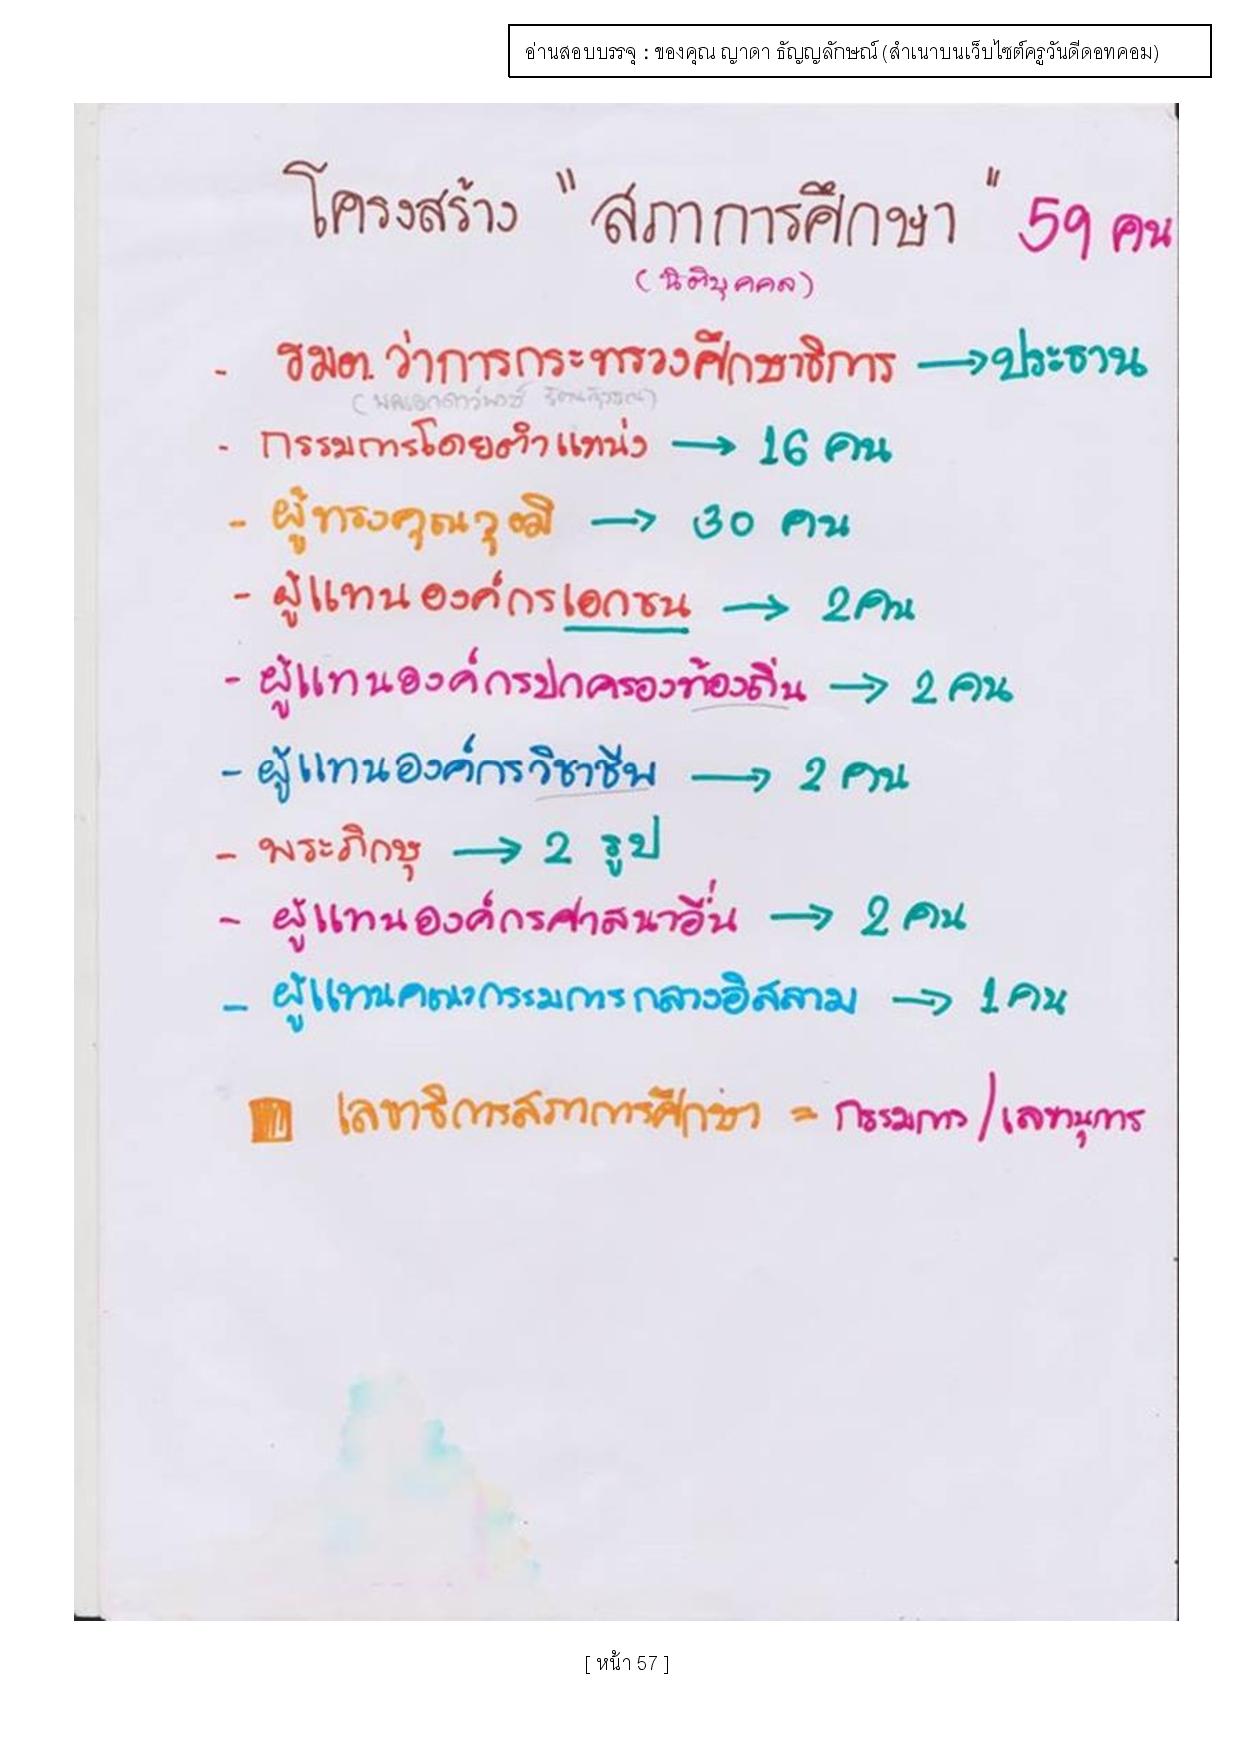 อ่านสอบบรรจุ : ของคุณ ญาดา ธัญญลักษณ์ (สำเนาบนเว็บไซต์ครูวันดีดอทคอม)
โครงสร้าง "สภาการศึกษา" 59 คน
(นิติบุคคล)
- รมต. ว่าการกระทรวงศึกษาธิการ → ประธาน
(พลเอกดาว์พงษ์ รัตนสุวรรณ)
- กรรมการโดยตำแหน่ง → 16 คน
- ผู้ทรงคุณวุฒิ → 30 คน
- ผู้แทนองค์กรเอกชน → 2 คน
- ผู้แทนองค์กรปกครองท้องถิ่น → 2 คน
- ผู้แทนองค์กรวิชาชีพ → 2 คน
- พระภิกษุ → 2 รูป
- ผู้แทนองค์กรศาสนาอื่น → 2 คน
- ผู้แทนคณะกรรมการกลางอิสลาม → 1 คน
เลขาธิการสภาการศึกษา = กรรมการ/เลขานุการ
[ หน้า 57 ]